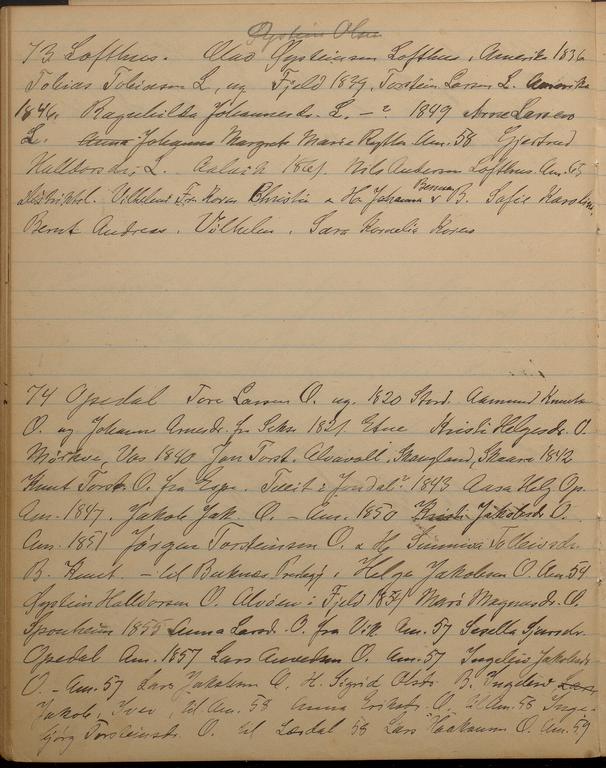 Øystein Olsen
73 Lofthus. Olav Øysteinsen Lofthus, Amerika 1836
Tobias Tobiassen L, ug Fjeld 1829, Torstein Larsen L. Amerika
1846, Ragnhilda Johannesdr. L. – ? 1849 Arne Larsen
L. Anna Johanna Margrete Marie Rytter Am. 58 Gjertrud
Halldorsdr. L. 1861 Nils Andersen Lofthus. Am. 65
Vilhelm Fr. Koren Christin & H. Johanna Benner & B. Sofie Karoline,
Bernt Andreas, Vilhelm, Sara Kornelia Koren
74 Opedal Tore Larsen O. ug. 1820 Stord. Aamund Knuts
O. ug Johanna Arnesdr. fr Sekse 1821 Etne Kristi Helgesdr. O.
Vos 1840 Jon Torst. Skaugland, Skaare 1842
Knut Torst. O. fra Espe. Tveit i Jondal? 1843 Aasa Helg. Op.
Am. 1847. Jakob Jak. O. – Am. 1850 Kristi Jakobsdr O.
Am. 1851 Jørgen Torsteinsen O. & H
B. Knut. – til Buknes Helge Jakobsen O. Am 54
Øystein Halldorsen O. i Fjeld 1854 Mari Magnesdr. O.
Sponheim 1855 Anna Larsd. O. fra Vik Am. 57 Sesella
Opedal Am. 1857 Lars Amundsen O. Am. 57 Ingeleiv Jakobsdr
O. – Am. 57 Lars Jakobsen O. H. Sigrid Olsdr B. Ingeleiv Lars,
Jakob, Iver, til Am. 58 Anna O. til Am. 58 Inge-
bjørg Torsteinsdr O. til Lærdal 58 Lars Haakonsen O. Am. 59